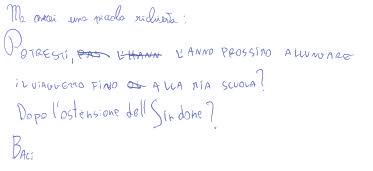 Ma avrei una piccola richiesta:
POTRESTI, L'ANNO PROSSIMO ALLUNGARE
IL VIAGGETTO FINO ALLA MIA SCUOLA?
Dopo l'ostensione dell Sindone?
BACI